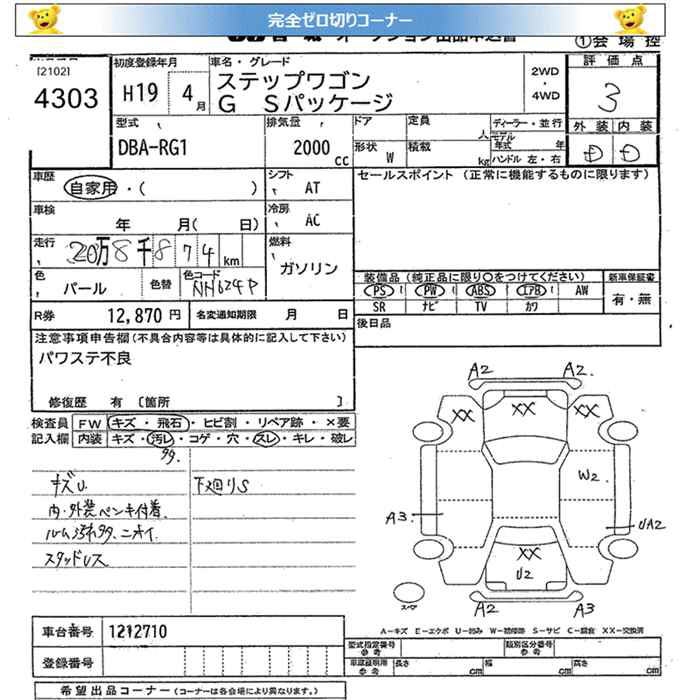 完全ゼロ切りコーナー
①会場控
[2102]
4303
初度登録年月
H19 4月
車名・グレード
ステップワゴン
G Sパッケージ
2WD
・
4WD
評価点
3
外装 内装
D D
型式
DBA-RG1
排気量
2000 cc
ドア
形状 W
定員 人
積載 kg
ディーラー・並行
モデル年式 年
ハンドル 左・右
車歴
自家用・( )
シフト AT
車検
年 月( 日)
冷房 AC
走行
20万8千874km
燃料
ガソリン
色
パール
色替
色コード
NH624P
R券 12,870 円
名変通知期限 月 日
セールスポイント (正常に機能するものに限ります)
装備品(純正品に限り○をつけてください)
PS PW ABS エアB AW
SR ナビ TV カワ
新車保証書
有・無
後日品
注意事項申告欄(不具合内容等は具体的に記入して下さい)
パワステ不良
修復歴 有 [箇所 ]
検査員 FW キズ・飛石・ヒビ割・リペア跡・×要
記入欄 内装 キズ・汚レ・コゲ・穴・スレ・キレ・破レ
タタ.
キズU
下廻りS
内・外装ペンキ付着.
ルーム汚れタタ、ニオイ.
スタッドレス
A2 A2.
XX XX XX
W2
A3 UA2
XX
U2
A2 A3
スペア
A-キズ E-エクボ U-凹み W-補修跡 S-サビ C-腐食 XX-交換済
車台番号 1212710
登録番号
型式指定番号 参考
類別区分番号 参考
車庫証明用 参考
長さ cm 幅 cm 高さ cm
希望出品コーナー(コーナーは各会場により異なります。)